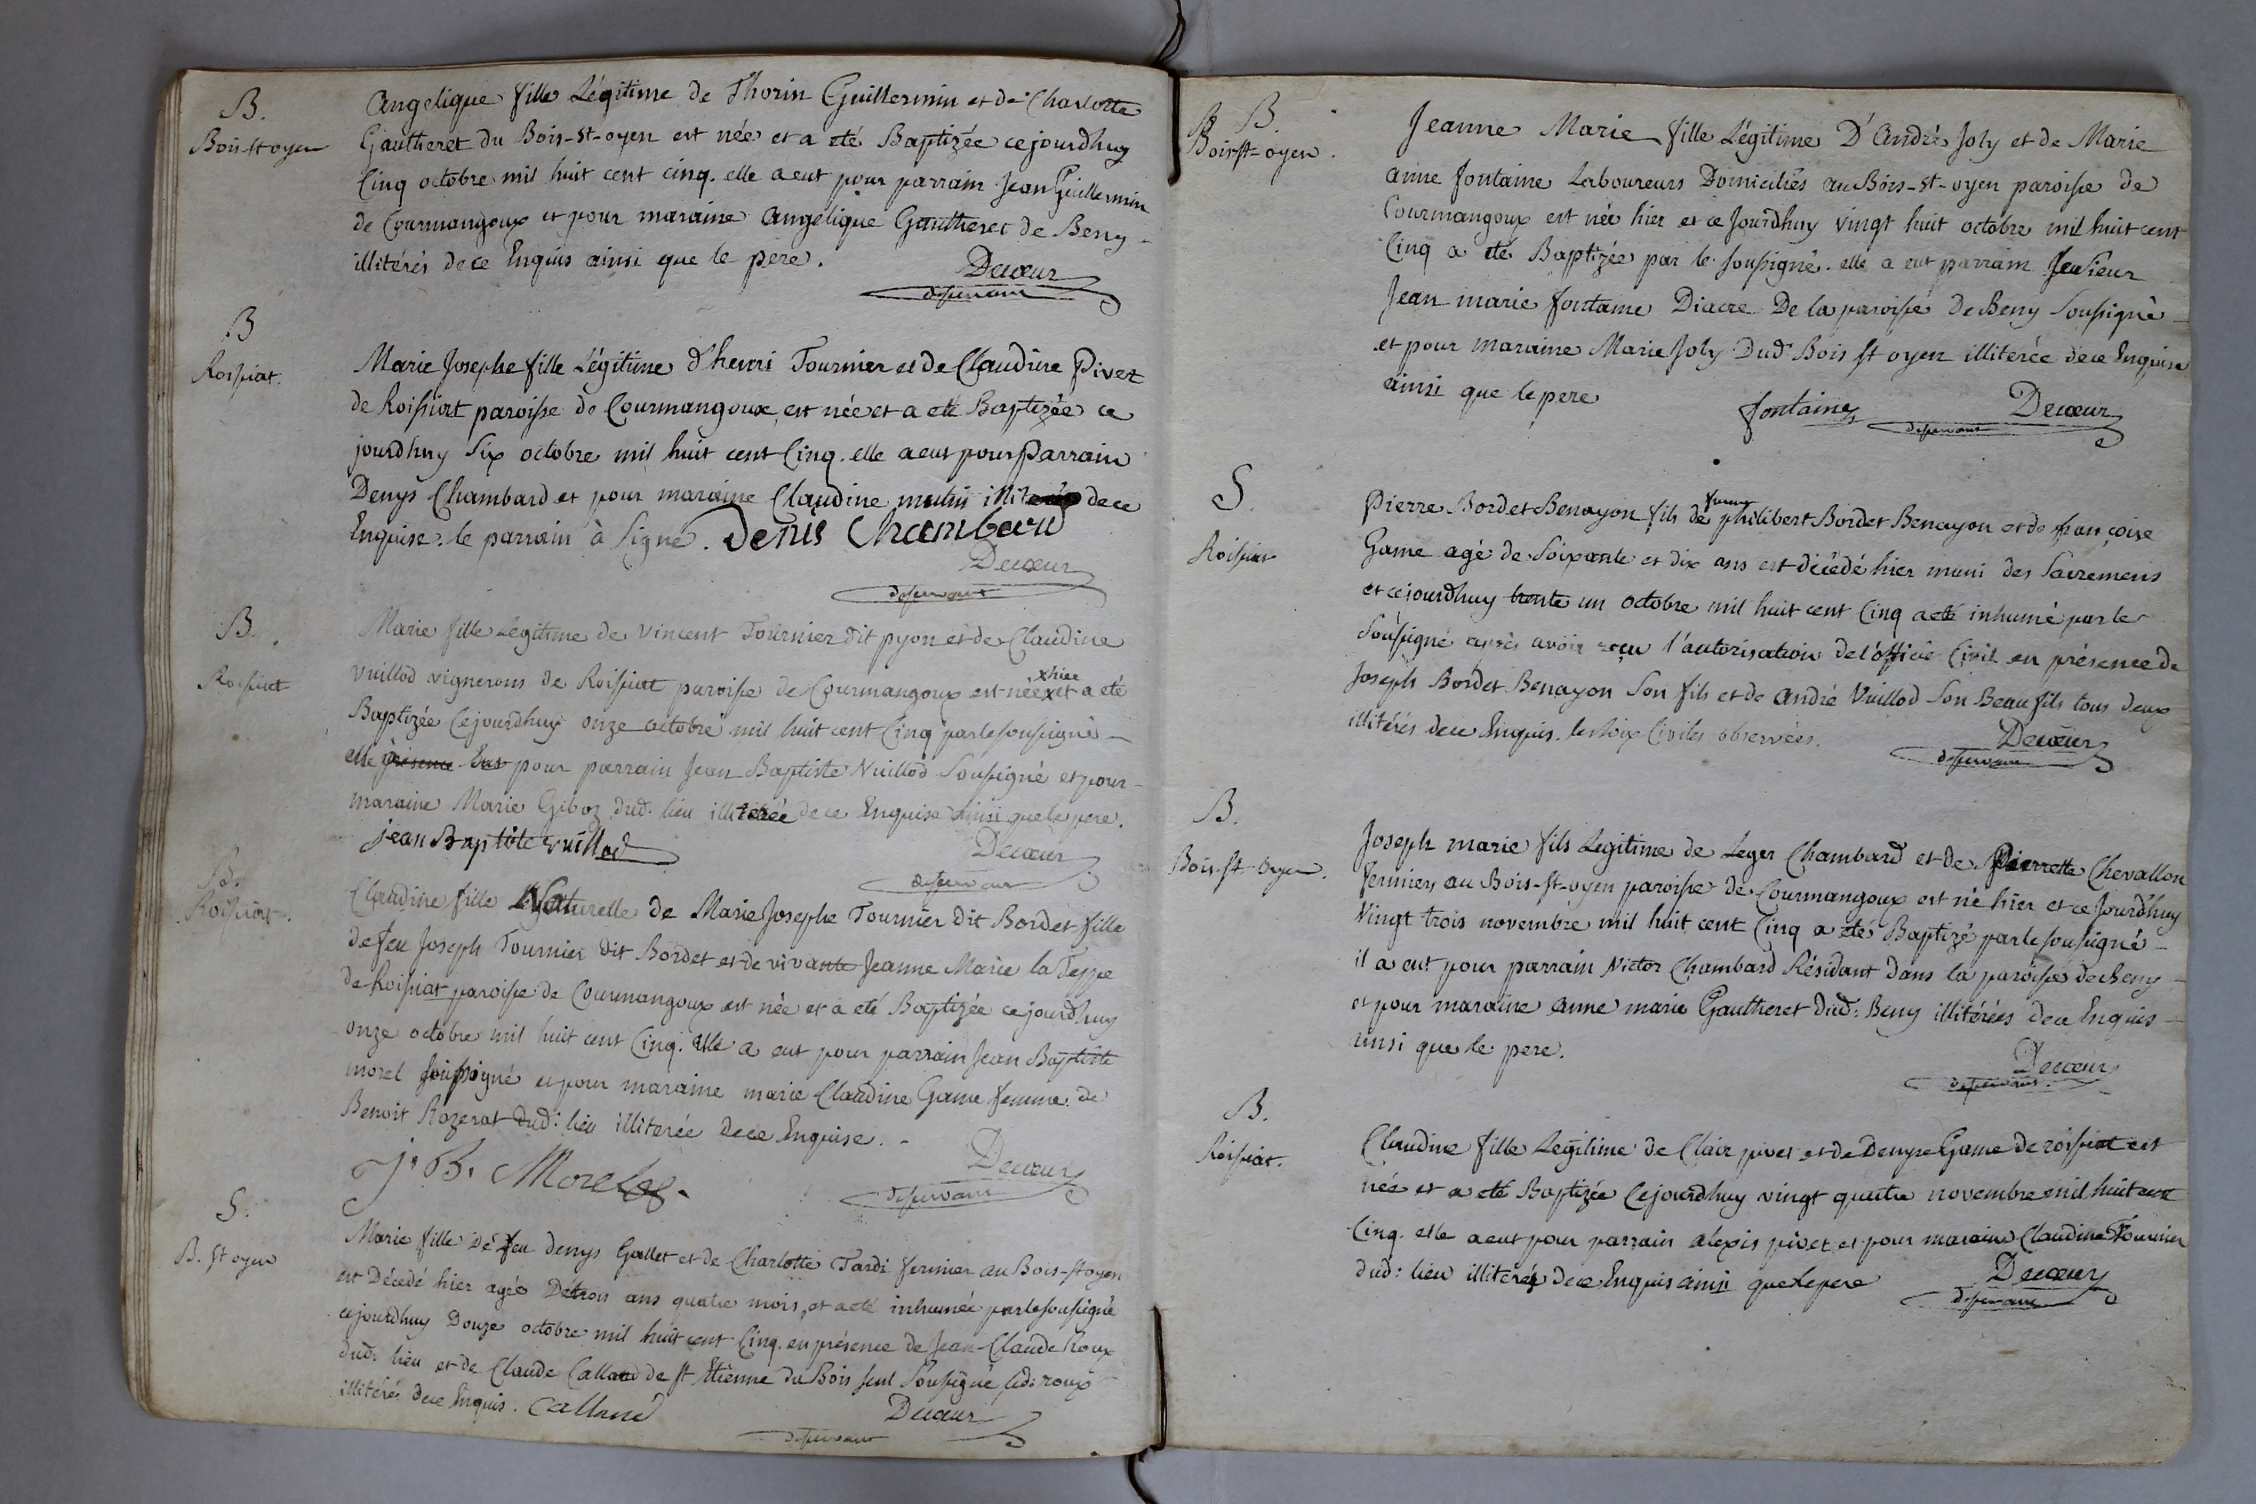 B.
Bois-st oyen
Angelique fille Légitime de Thorin Guillermin et de Charlotte
Gautheret du Bois-st-oyen est née et a eté Baptizée cejourdhuy
Cinq octobre mil huit cent cinq. elle a eut pour parrain Jean Guillermin
de Courmangoux et pour maraine Angelique Gautheret de Beny -
illitérés de ce Enquis ainsi que le pere.
Decœur
desservant
B
Roissiat.
Marie Josephe fille Légitime d'henri Tournier et de Claudine Pivet
de Roissiat paroisse de Courmangoux est née et a eté Baptizée ce
jourdhuy Six octobre mil huit cent Cinq. elle a eut pour Parrain
Denys Chambard et pour maraine Claudine de ce
Enquise. le parrain à Signé. Denis Chambard
Decœur
desservant
B.
Roissiat
Marie fille Légitime de vincent Tournier dit pyon et de Claudine
Vuillod vignerons de Roissiat paroisse de Courmangoux est née x et a eté
xhier
Baptizée Cejourdhuy onze octobre mil huit cent Cinq par le soussigné -
elle présence Eut pour parrain Jean Baptiste Vuillod Soussigné et pour -
maraine Marie Giboz dud. lieu illiterée de ce Enquise ainsi que le pere.
jean Baptiste vuillod
Decœur
desservant
B.
Roissiat.
Claudine fille Naturelle de Marie Josephe Tournier Dit Bordet fille
de feu Joseph Tournier dit Bordet et de vivante Jeanne Marie la Teppe
de Roissiat paroisse de Courmangoux est née et a eté Baptizée cejourdhuy
onze octobre mil huit cent Cinq. Elle a eut pour parrain Jean Baptiste
morel soussigné et pour maraine marie Claudine Game femme de
Benoit Rozerat dud: lieu illiterée de ce Enquise. -
J. B. Morel
Decœur
desservant
S.
B. st oyen
Marie fille de feu denys Gallet et de Charlotte Tardi fermier au Bois-st oyen
est Décedé hier agée De trois ans quatre mois, et a eté inhumée par le soussigné
cejourdhuy Douze octobre mil huit cent Cinq. en présence de Jean-Claude Roux
dud. lieu et de Claude Calland de st Etienne du Bois seul Soussigné led: roux
illitéré de ce Enquis. Calland
Decœur
desservant
B.
Bois-st-oyen.
Jeanne Marie fille Légitime D'André Joly et de Marie
anne fontaine Laboureurs Domiciliés au Bois-st-oyen paroisse de
Courmangoux est née hier et ce Jourdhuy vingt huit octobre mil huit cent
Cinq a eté Baptizée par le soussigné. elle a eut parrain Sieur
Jean marie fontaine Diacre De la paroisse de Beny Soussigné -
et pour maraine Marie Joly Dud. Bois st oyen illiterée de ce Enquise
ainsi que le pere
fontaine
Decœur
desservant
S.
Roissiat
Pierre Bordet Benayon fils de philibert Bordet Benayon et de françoise
Game agé de Soixante et dix ans est décédé hier muni des Sacremens
et cejourdhuy trente un octobre mil huit cent Cinq a eté inhumé par le
Soussigné après avoir reçu l'autorisation de l'officie Civil en présence de
Joseph Bordet Benayon Son fils et de André Vuillod Son Beau fils tous deux
illitérés de ce Enquis. les loix Civiles observées.
Decœur
desservant
B.
Bois-st-oyen.
Joseph marie fils Legitime de Leger Chambard et de Pierrette Chevallon
fermiers au Bois-st-oyen paroisse de Courmangoux est né hier et ce Jourdhuy
Vingt trois novembre mil huit cent Cinq a eté Baptizé par le soussigné -
il a eut pour parrain Victor Chambard Résidant dans la paroisse de Beny -
et pour maraine anne marie Gautheret dud: Beny illitérées de ce Enquis -
ainsi que le pere.
Decœur
desservant.
B.
Roissiat.
Claudine fille Legitime de Clair pivet et de Denyse Game de roissiat est
née et a eté Baptizée Cejourdhuy vingt quatre novembre mil huit cent
Cinq. elle a eut pour parrain alexis pivet et pour maraine Claudine Tournier
dud: lieu illiterés de ce Enquis ainsi que le pere
Decœur
desservant